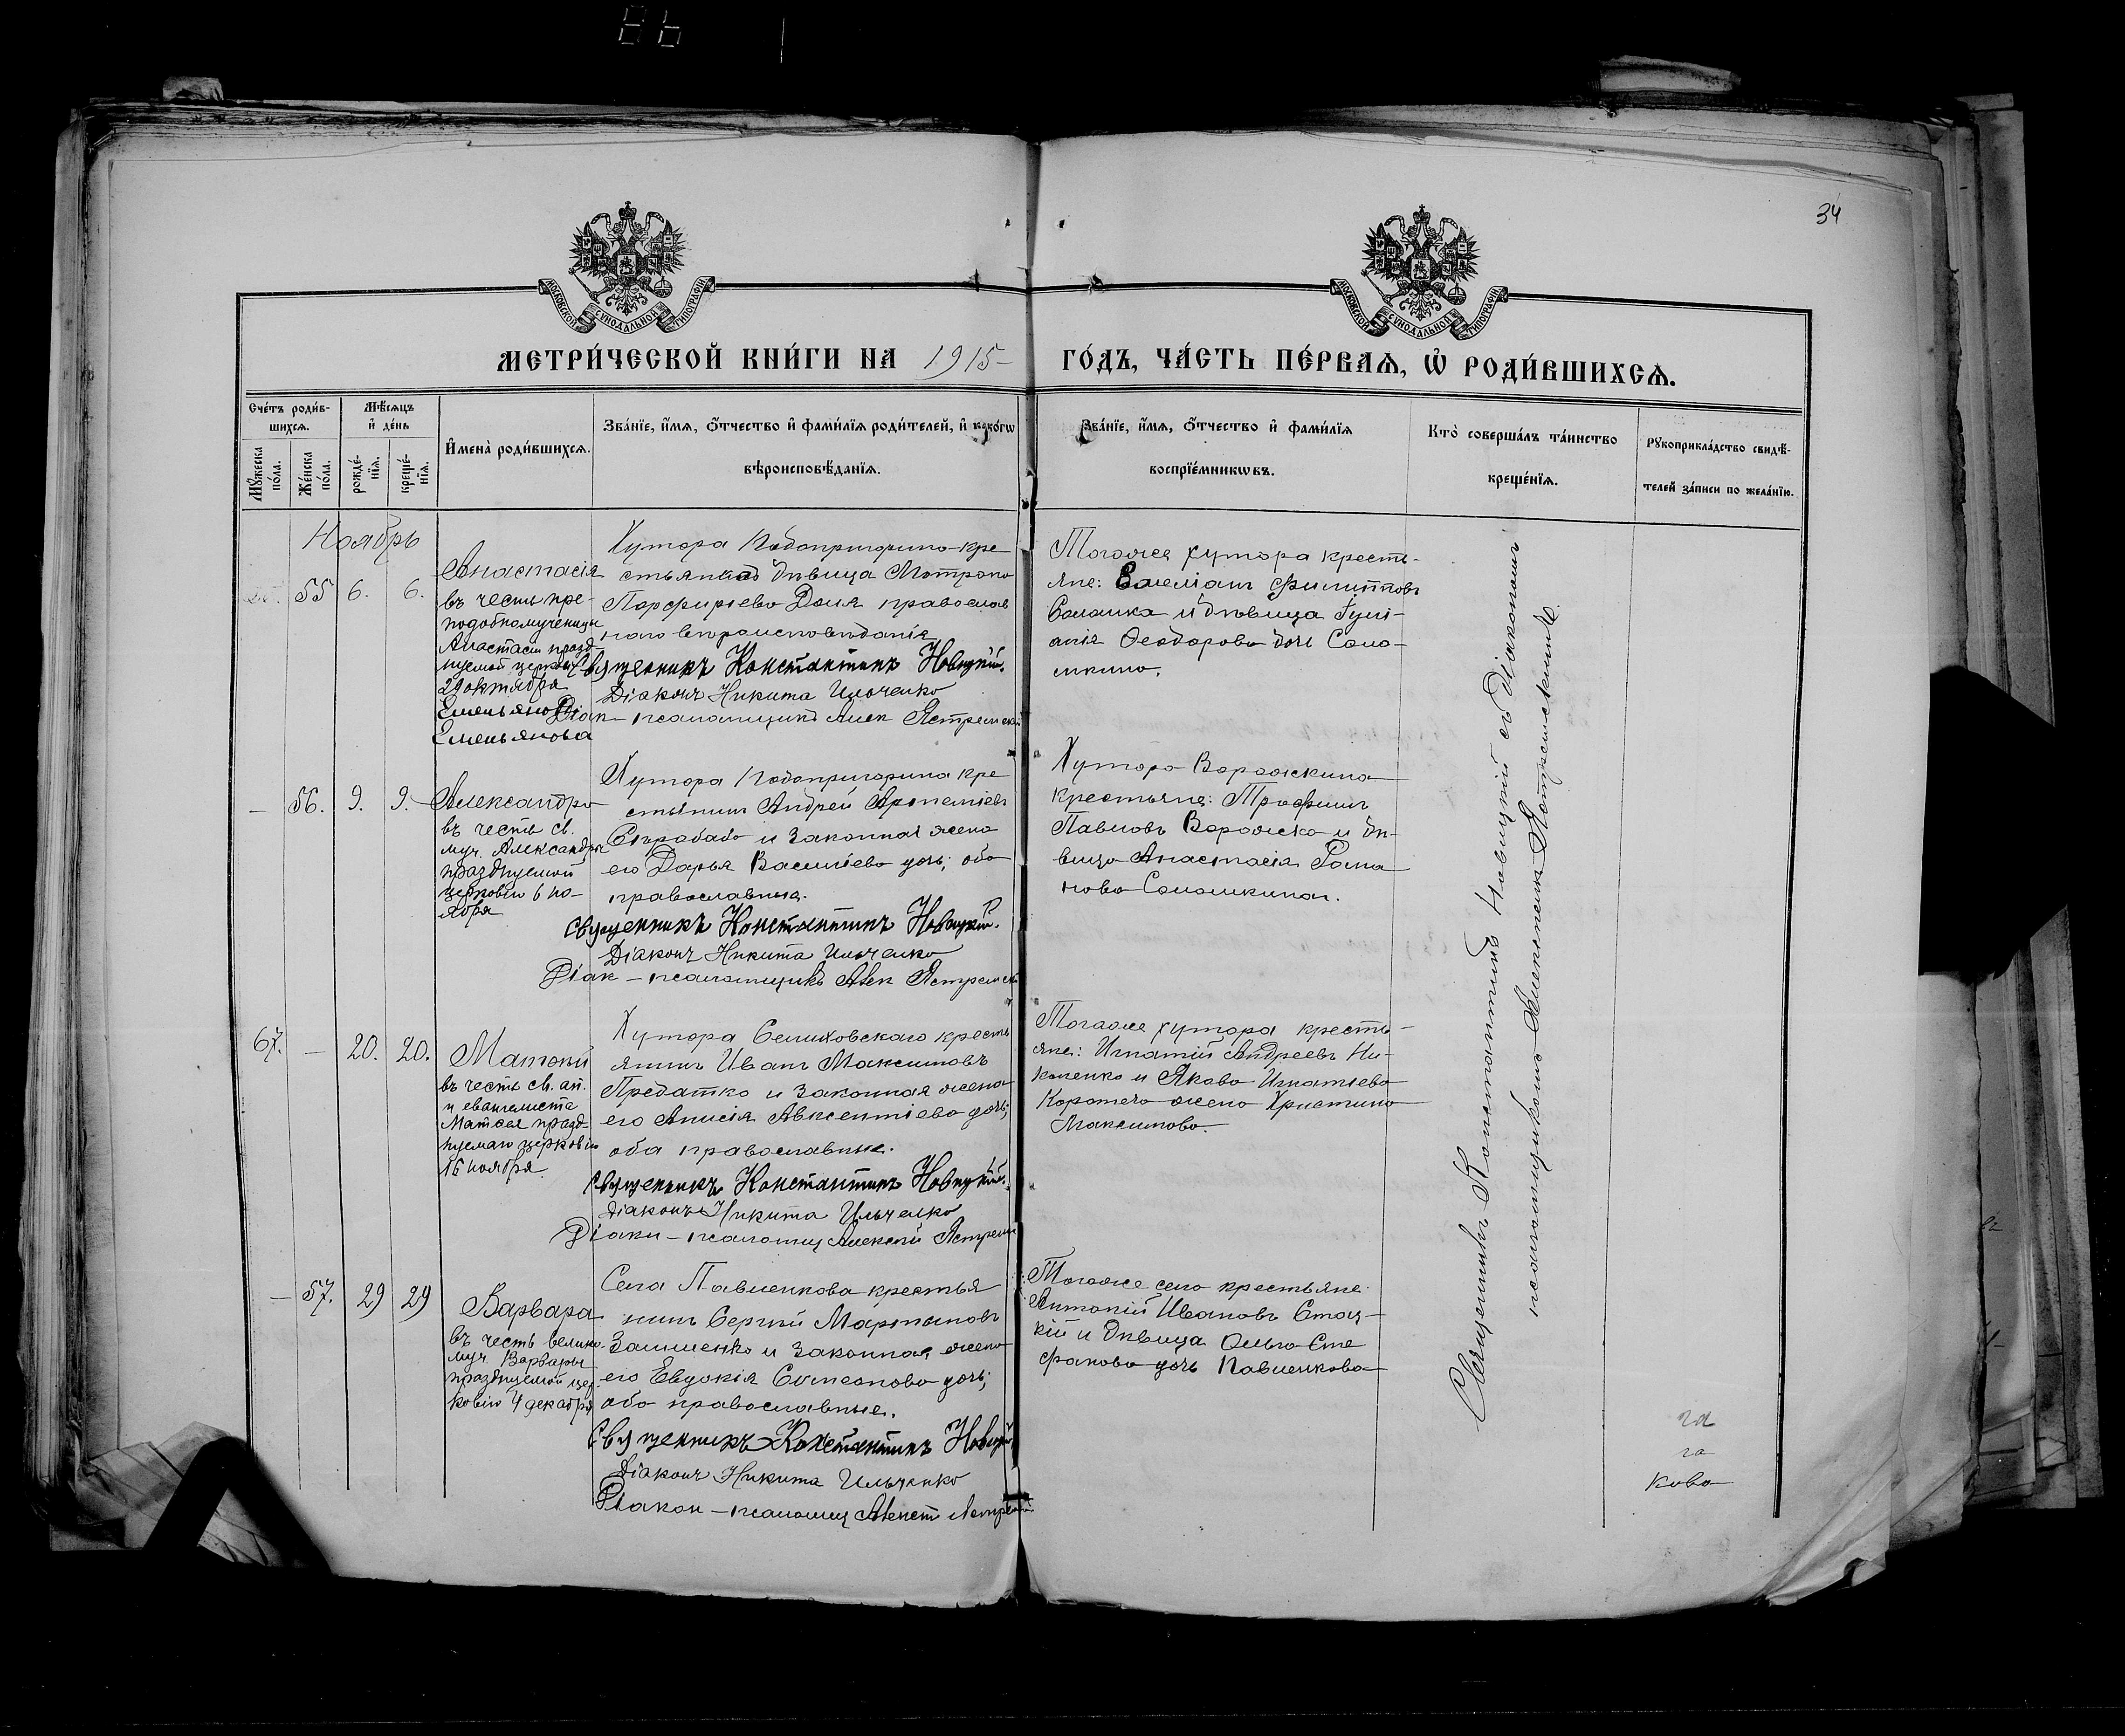 34
МОСКОВСКОЙ СѴНОДАЛЬНОЙ ТИПОГРАФІИ
МОСКОВСКОЙ СѴНОДАЛЬНОЙ ТИПОГРАФІИ
МЕТРИ́ЧЕСКОЙ КНИ́ГИ НА 1915 ГО́ДЪ, ЧА́СТЬ ПЕ́РВАѦ, Ѡ РОДИ́ВШИХСѦ.
Сче́тъ роди́в-
шихсѧ.
Мꙋ́жеска по́ла.
Же́нска по́ла.
Мѣ́сѧцъ
и҆ де́нь
рожде́-
нїѧ.
креще́-
нїѧ.
И҆мена̀ роди́вшихсѧ.
Зва́нїе, и҆́мѧ, ѻ҆́тчество и҆ фами́лїѧ роди́телей, и҆ како́гѡ
вѣроисповѣ́данїѧ.
Зва́нїе, и҆́мѧ, ѻ҆́тчество и҆ фами́лїѧ
воспрїе́мникѡвъ.
Кто̀ соверша́лъ та́инство
креще́нїѧ.
Рꙋкоприкла́дство свидѣ́-
телей за́писи по жела́нїю.
Ноябрь
55 6. 6.
Анастасія
въ честь пре-
подобномученицы
Анастасіи празд-
нуемой церковію
29 октября
Емельянова
Хутора Кобопригорина кре-
дѣвица Матрона
Порфиріева православ
наго вѣроисповѣданія
Священникъ Константинъ Новицкій.
Діаконъ Никита Ильченко
Діак - псаломщикъ Алек Ястремскій
Тогоже хутора кресть-
яне: Филипповъ
и дѣвица Іулі-
анія Ѳеодорова дочь Сало-
мкина.
— 56. 9. 9.
Александра
въ честь св.
муч. Александры
празднуемой
церковію 6 но-
ября
Хутора Кобопригорина кре
стьянинъ Андрей Артеміевъ
и законная жена
его Дарья Василіева дочь; оба
православные.
Священникъ Константинъ Новицкій.
Діаконъ Никита Ильченко
Діак - псаломщикъ Алек Ястремскій
Хутора Ворожкина
крестьяне: Трофимъ
Павловъ Ворожко и дѣ-
вица Анастасія Рома
нова Саломкина.
67. — 20. 20.
Матѳей
въ честь св. ап.
и евангелиста
Матѳея празд-
нуемаго церковію
16 ноября
Хутора Селиховскаго кресть
янинъ Иванъ Максимовъ
Предатко и законная жена
его Анисія Авксентіева дочь;
оба православные.
Священникъ Константинъ Новицкій.
Діаконъ Никита Ильченко
Діакон - псаломщ Алексѣй Ястремскій
Тогоже хутора кресть-
яне: Игнатій Андреевъ Ни-
коленко и Якова Игнатіева
Коротеча жена Христина
Максимова.
— 57. 29 29
Варвара
въ честь велико-
муч. Варвары
празднуемой цер-
ковію 4 декабря
Села Павленкова крестья
нинъ Сергѣй Мартыновъ
и законная жена
его Евдокія Симеонова дочь;
оба православные.
Священникъ Константинъ Новицкій
Діаконъ Никита Ильченко
Діакон - псаломщ Алексѣй Ястремскій
Тогоже села крестьяне:
Антоній Ивановъ Стац-
кій и дѣвица Ольга Сте
фанова дочь Павленкова
Священникъ Константинъ Новицкій съ Діакономъ
псаломщикомъ Алексѣемъ Ястремскимъ.
га
ко